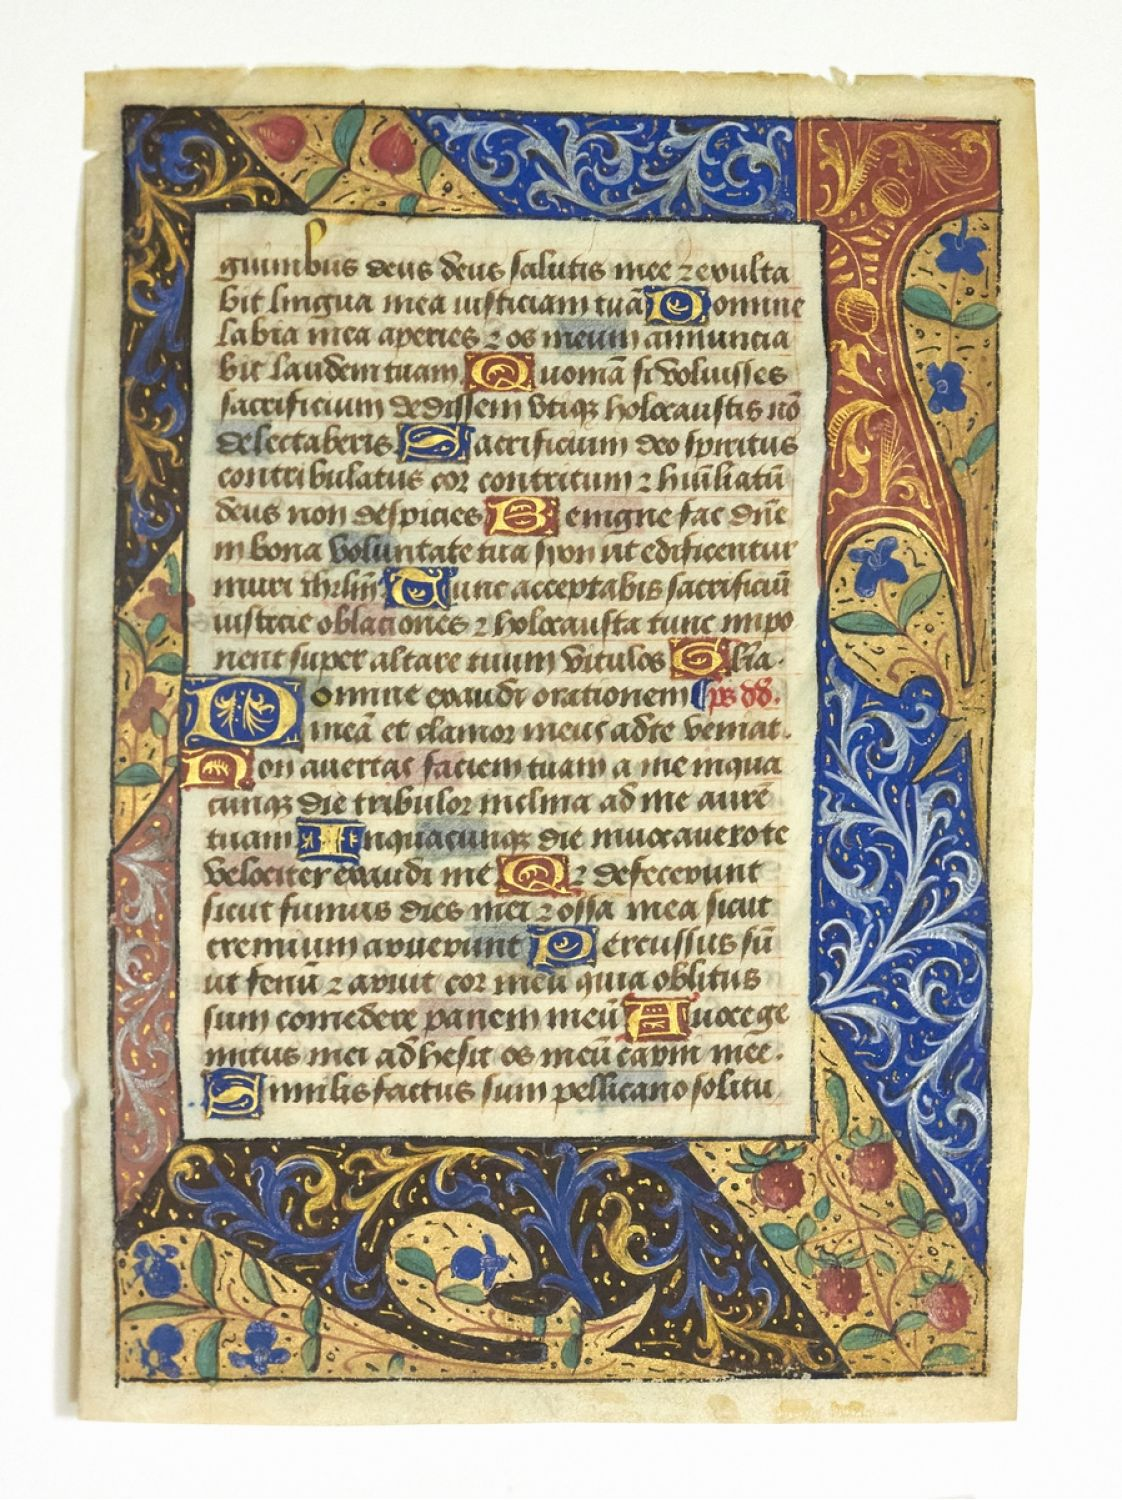 guinibus deus deus salutis mee ⁊ exulta
bit lingua mea iusticiam tuā Domine
labia mea aperies ⁊ os meum annuncia
bit laudem tuam Quoniā si voluisses
sacrificium dedissem vtiqꝫ holocaustis nō
delectaberis Sacrificium deo spiritus
contribulatus cor contritum ⁊ humiliatū
deus non despicies Benigne fac dn̄e
in bona voluntate tua syon ut edificentur
muri ihrl̄m Tunc acceptabis sacrificiū
iusticie oblaciones ⁊ holocausta tunc impo
nent super altare tuum vitulos Glīa.
Domine exaudi orationem ps dd.
meā et clamor meus ad te veniat.
Non auertas faciem tuam a me inqua
cunqꝫ die tribulor inclina ad me aurē
tuam In quacunqꝫ die inuocauero te
velociter exaudi me Qꝛ defecerunt
sicut fumus dies mei ⁊ ossa mea sicut
cremium aruerunt Percussus sū
ut fenū ⁊ aruit cor meū quia oblitus
sum comedere panem meū A uoce ge
mitus mei adhesit os meū carni mee.
Similis factus sum pellicano solitu